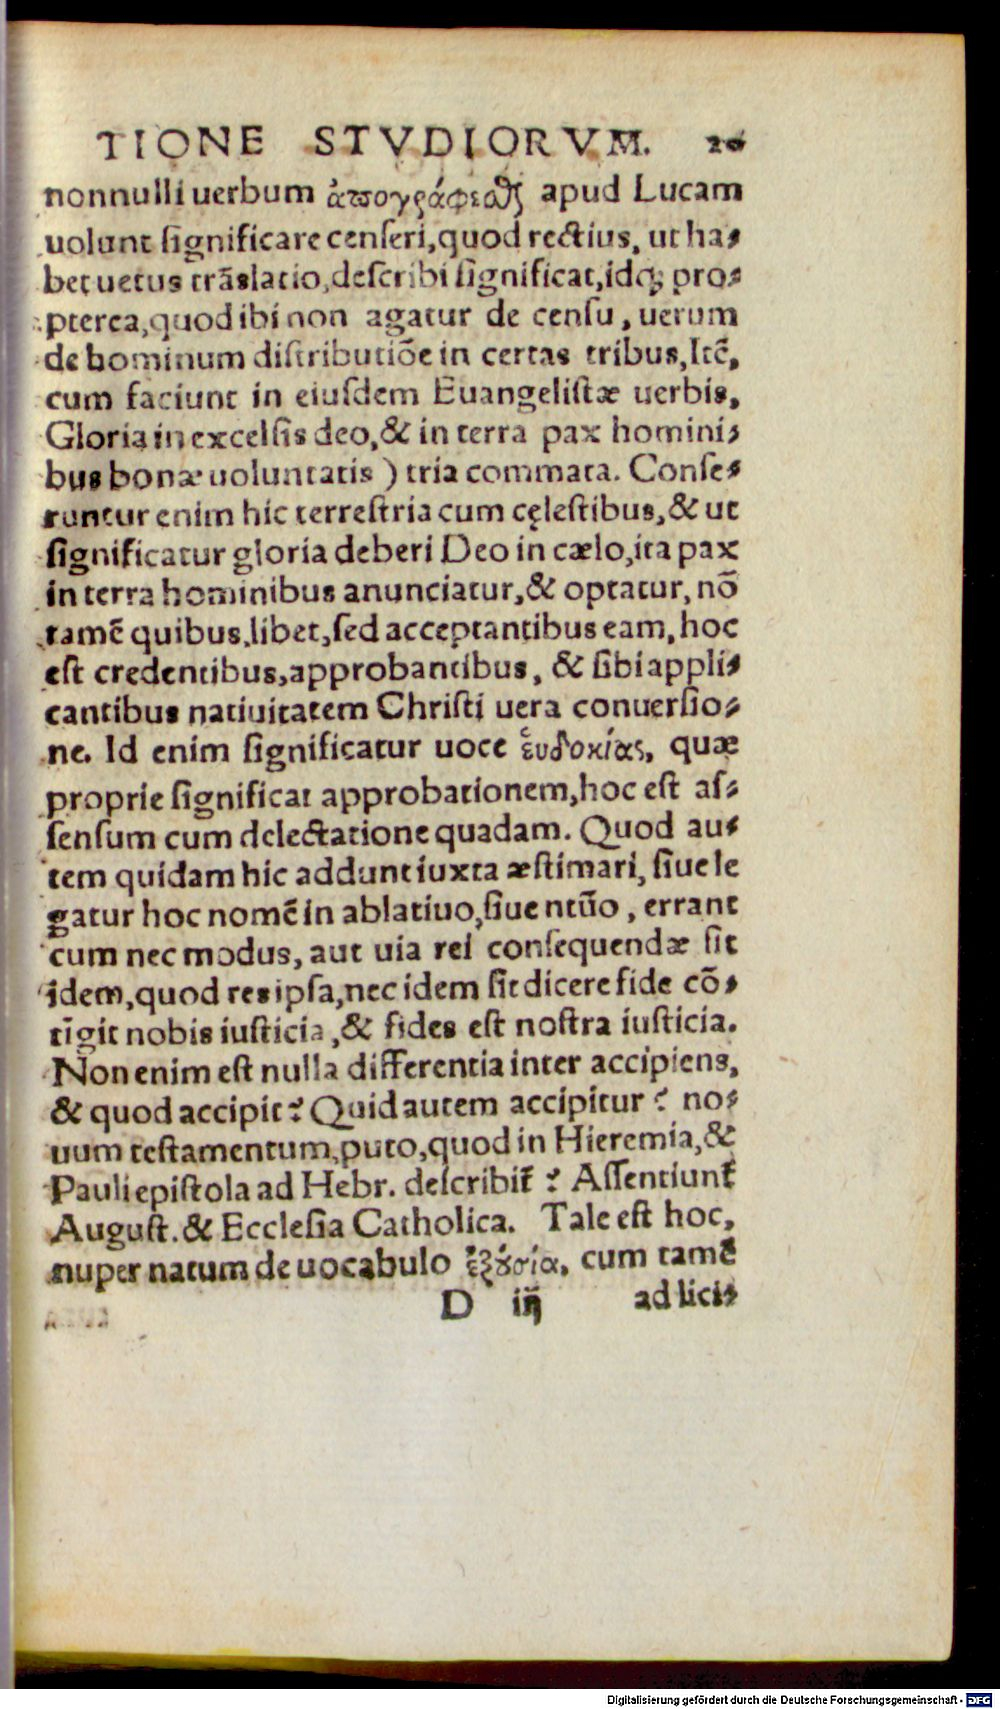 TIONE STVDIORVM. 20
nonnulli uerbum ἀπογράφεσθαι apud Lucam
uolunt ſignificare cenſeri, quod rectius, ut ha-
bet uetus trãſlatio, deſcribi ſignificat, idq; pro-
pterea, quod ibi non agatur de cenſu, uerum
de hominum diſtributiõe in certas tribus, Itẽ,
cum faciunt in eiuſdem Euangeliſtæ uerbis,
Gloria in excelſis deo, & in terra pax homini-
bus bonæ uoluntatis) tria commata. Conſe-
runtur enim hic terreſtria cum cęleſtibus, & ut
ſignificatur gloria deberi Deo in cælo, ita pax
in terra hominibus anunciatur, & optatur, nõ
tamẽ quibus libet, ſed acceptantibus eam, hoc
eſt credentibus, approbantibus, & ſibi appli-
cantibus natiuitatem Chriſti uera conuerſio-
ne. Id enim ſignificatur uoce εὐδοκίας, quæ
proprie ſignificat approbationem, hoc eſt aſ-
ſenſum cum delectatione quadam. Quod au-
tem quidam hic addunt iuxta æſtimari, ſiue le
gatur hoc nomẽ in ablatiuo, ſiue ntũo, errant
cum nec modus, aut uia rei conſequendæ ſit
idem, quod res ipſa, nec idem ſit dicere fide cõ-
tĩgit nobis iuſticia, & fides eſt noſtra iuſticia.
Non enim eſt nulla differentia inter accipiens,
& quod accipit? Quid autem accipitur? no-
uum teſtamentum, puto, quod in Hieremia, &
Pauli epiſtola ad Hebr. deſcribit̃? Aſſentiunt̃
Auguſt. & Eccleſia Catholica. Tale eſt hoc,
nuper natum de uocabulo ἐξȣσία, cum tamẽ
D iij ad lici-
Digitalisierung gefördert durch die Deutsche Forschungsgemeinschaft - DFG